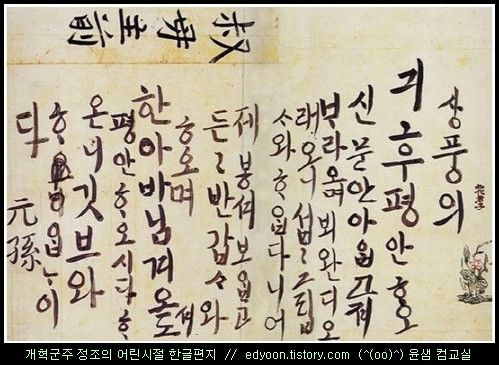 叔母主前
상풍의
긔후평안ᄒᆞ오
신 문안 아ᄋᆞᆸ고져
ᄇᆞ라오며 뵈완디 오
래오니 섭〻 그립
ᄉᆞ와 ᄒᆞᄋᆞᆸ다니 어
제 봉셔 보ᄋᆞᆸ고
든〻 반갑ᄉᆞ와
ᄒᆞ오며
한아바님 겨오셔도
평안ᄒᆞ오시다 ᄒᆞ
온니 깃브와
ᄒᆞᄋᆞᆸᄂᆞ이
다
元孫
개혁군주 정조의 어린시절 한글편지 // edyoon.tistory.com (^(oo)^) 윤샘 컴교실